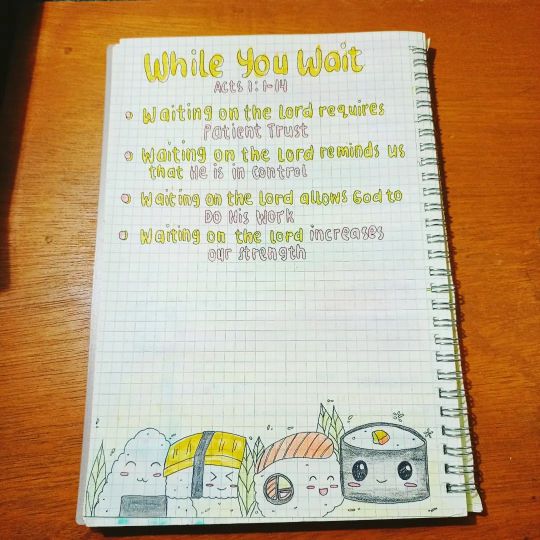 While You Wait
Acts 1:1-14
Waiting on the Lord requires
Patient Trust
Waiting on the Lord reminds us
that He is in control
Waiting on the Lord allows God to
Do His Work
Waiting on the Lord increases
our strength